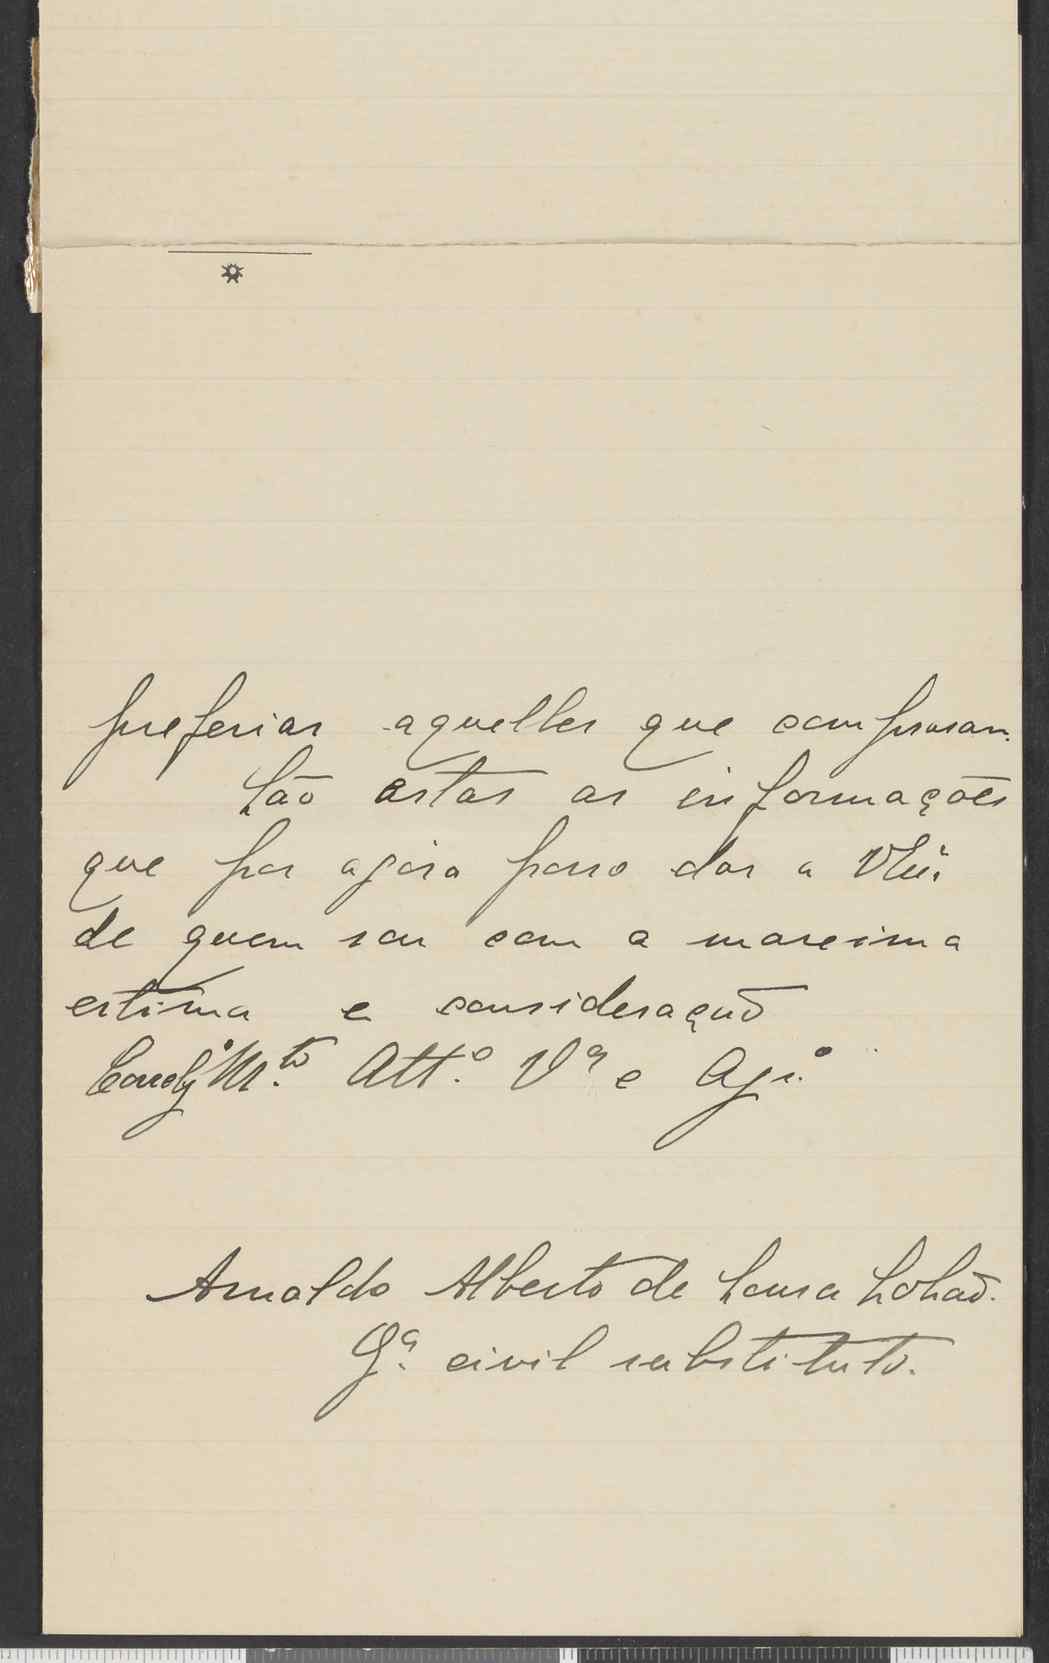 preferiar aquelles que compravam.
São estas as informações
que por agora posso dar a VEx.
de quem sou com a maxima
estima e consideração
M.to Att.o V.or e
Arnaldo Alberto de Sousa Lobão.
G.or civil substituto.